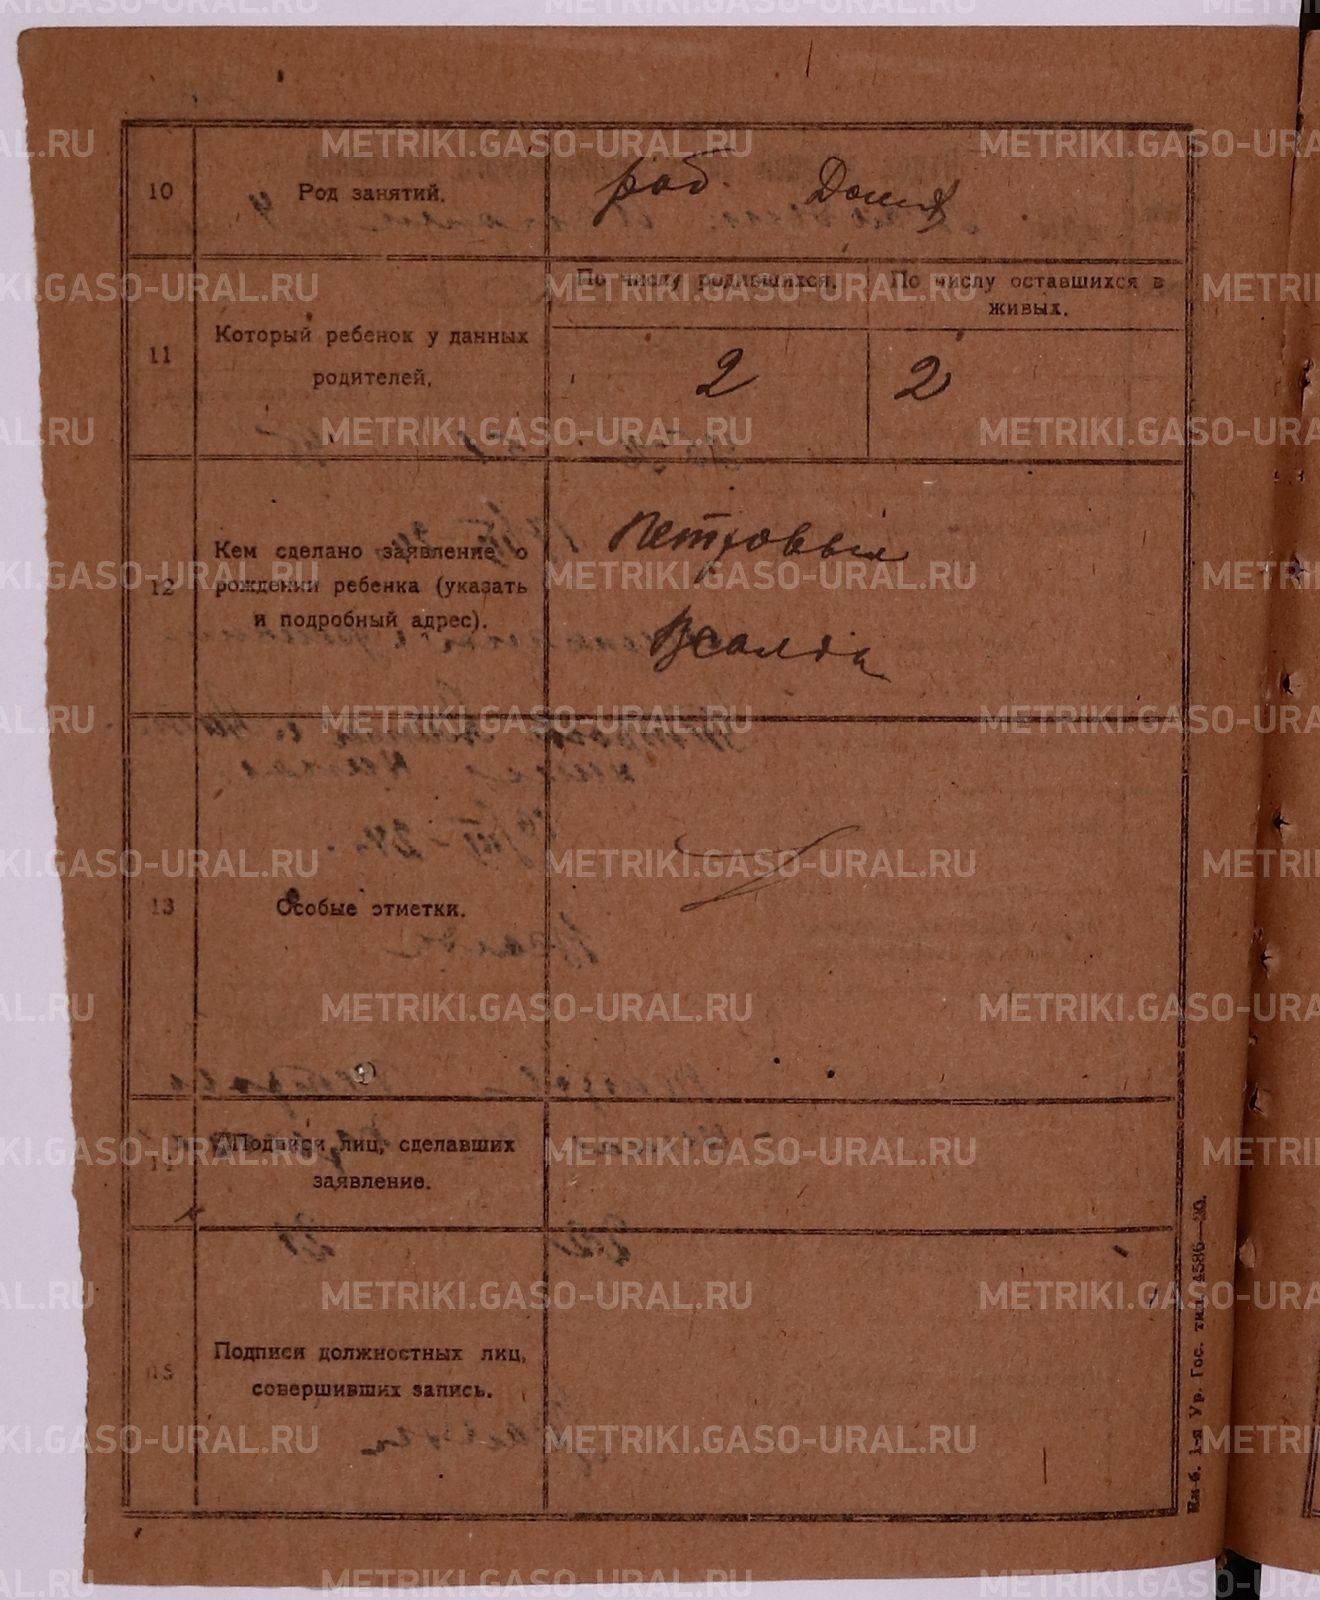 10
Род занятий.
раб. Домя
11
Который ребенок у данных
родителей.
По числу родившихся.
По числу оставшихся в
живых.
2
2
12
Кем сделано заявление о
рождении ребенка (указать
и подробный адрес).
Петровым
В салда
13
Особые отметки.
14
Подписи лиц, сделавших
заявление.
15
Подписи должностных лиц,
совершивших запись.
1-я Ур. Гос. тип. 4586—20.
METRIKI.GASO-URAL.RU